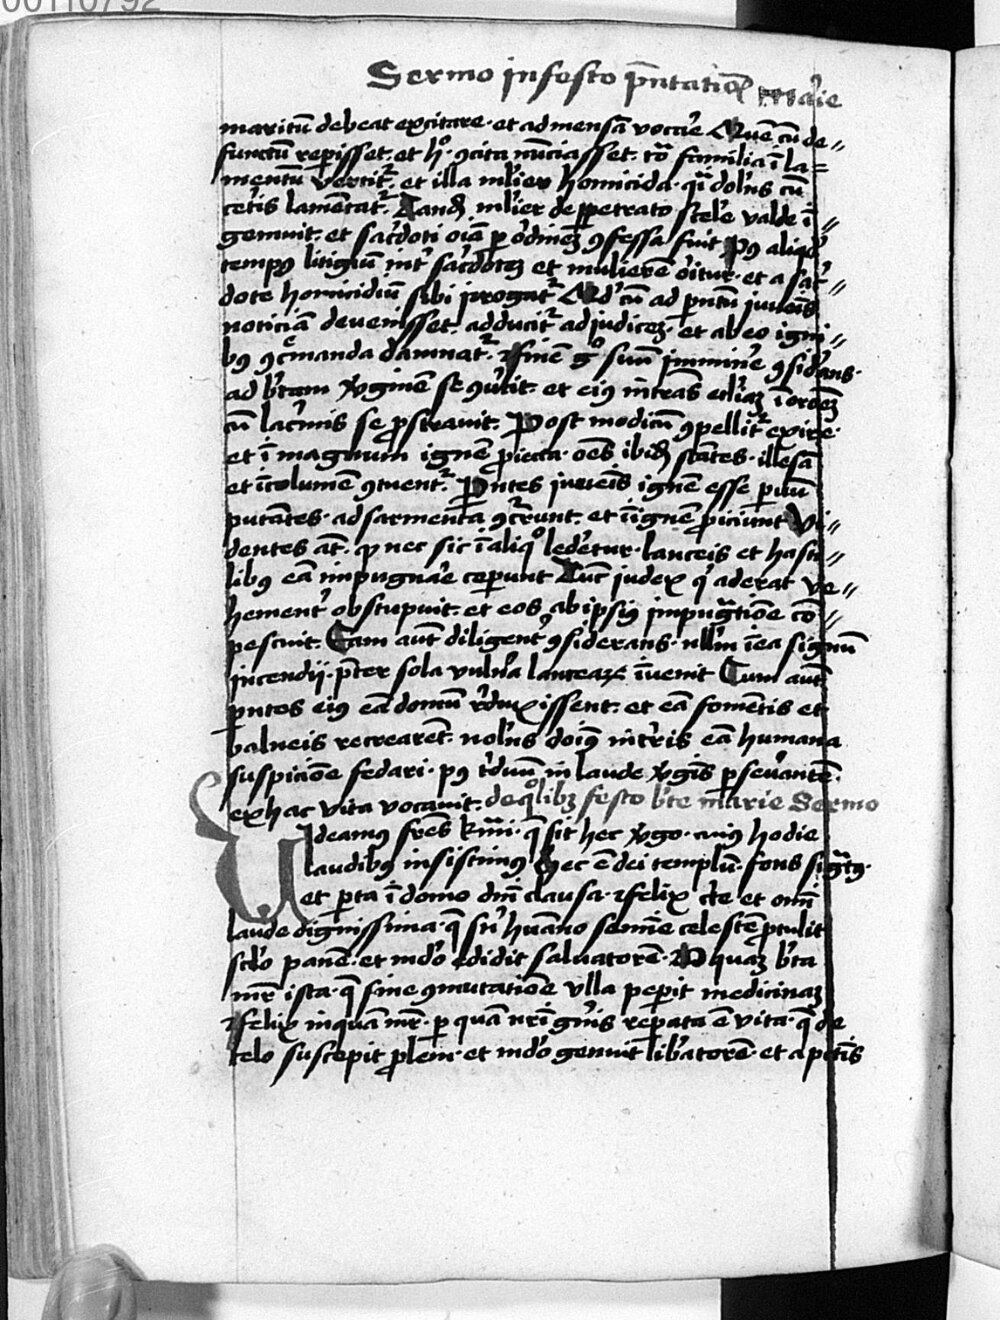 00110792
Sermo in festo p̄ntatiōis marie
maritū debeat excitare · et ad mensā vocare Quē cū de⸗
functū reperisset · et hoc ꝯcita nūciasset · tota familia ī la⸗
mentū vertitur · et illa mulier homicida · quasi dolens cū
ceteris lamentatur · Tandē mulier de perpetrato scelere valde ī⸗
gemuit · et sacerdoti oīa per ordinē ꝯfessa fuit Post aliquod
tempus litigiū inter sacerdotē et mulierē oritur · et a sacer⸗
dote homicidiū sibi irrogatur Quod cū ad parentū juvenis
noticiā devenisset · adducitur ad judicē · et ab eo igni⸗
bus ꝯcremanda damnatur · finē ergo suū imminere ꝯsiderans ·
ad beatam virginē se ꝯvertit · et eius intrans ecclesiā
cū lacrimis se prostravit · Post modicū ꝯpellitur exire ·
et ī magnum ignē proiecta · oēs ibidē stantes · illesā
et īcolumē ꝯtuentur · Parentes juvenis ignē esse parvū
putātes · ad sarmenta ꝯcurrunt · et ī ignē proiciunt Vi⸗
dentes autē · quod nec sic ī aliquo lederetur · lanceis et hasti⸗
libus eā impugnare ceperunt Tunc judex qui aderat ve⸗
hementer obstupuit · et eos ab ipsius impugnatione cō⸗
pescuit · Eam autē diligenter ꝯsiderans · nullum ī ea signū
incendii · preter sola vulnera lancearum īvenit Cum autē
parentes eius eā domū reduxissent · et eā fomentis et
balneis recrearent · nolens dominus interius eā humana
suspicione fedari · post triduū in laude virginis perseverantē ·
ex hac vita vocavit · de quolibet festo beate marie Sermo
Videamus fratres karissimi · que sit hec virgo · cuius hodie
laudibus insistimus Hec ē dei templū · fons signatus ·
et porta ī domo domini clausa · felix certe et omni
laude dignissima · que sine humano semine celestē protulit
seculo panē · et mundo edidit salvatorē · O quam beata
mater ista · que sine ꝯmutatione ulla peperit medicinam
felix inquā mater · per quā nostri generis reparata ē vita · que de
celo suscepit prolem · et mundo genuit liberatorē · et a peccatis